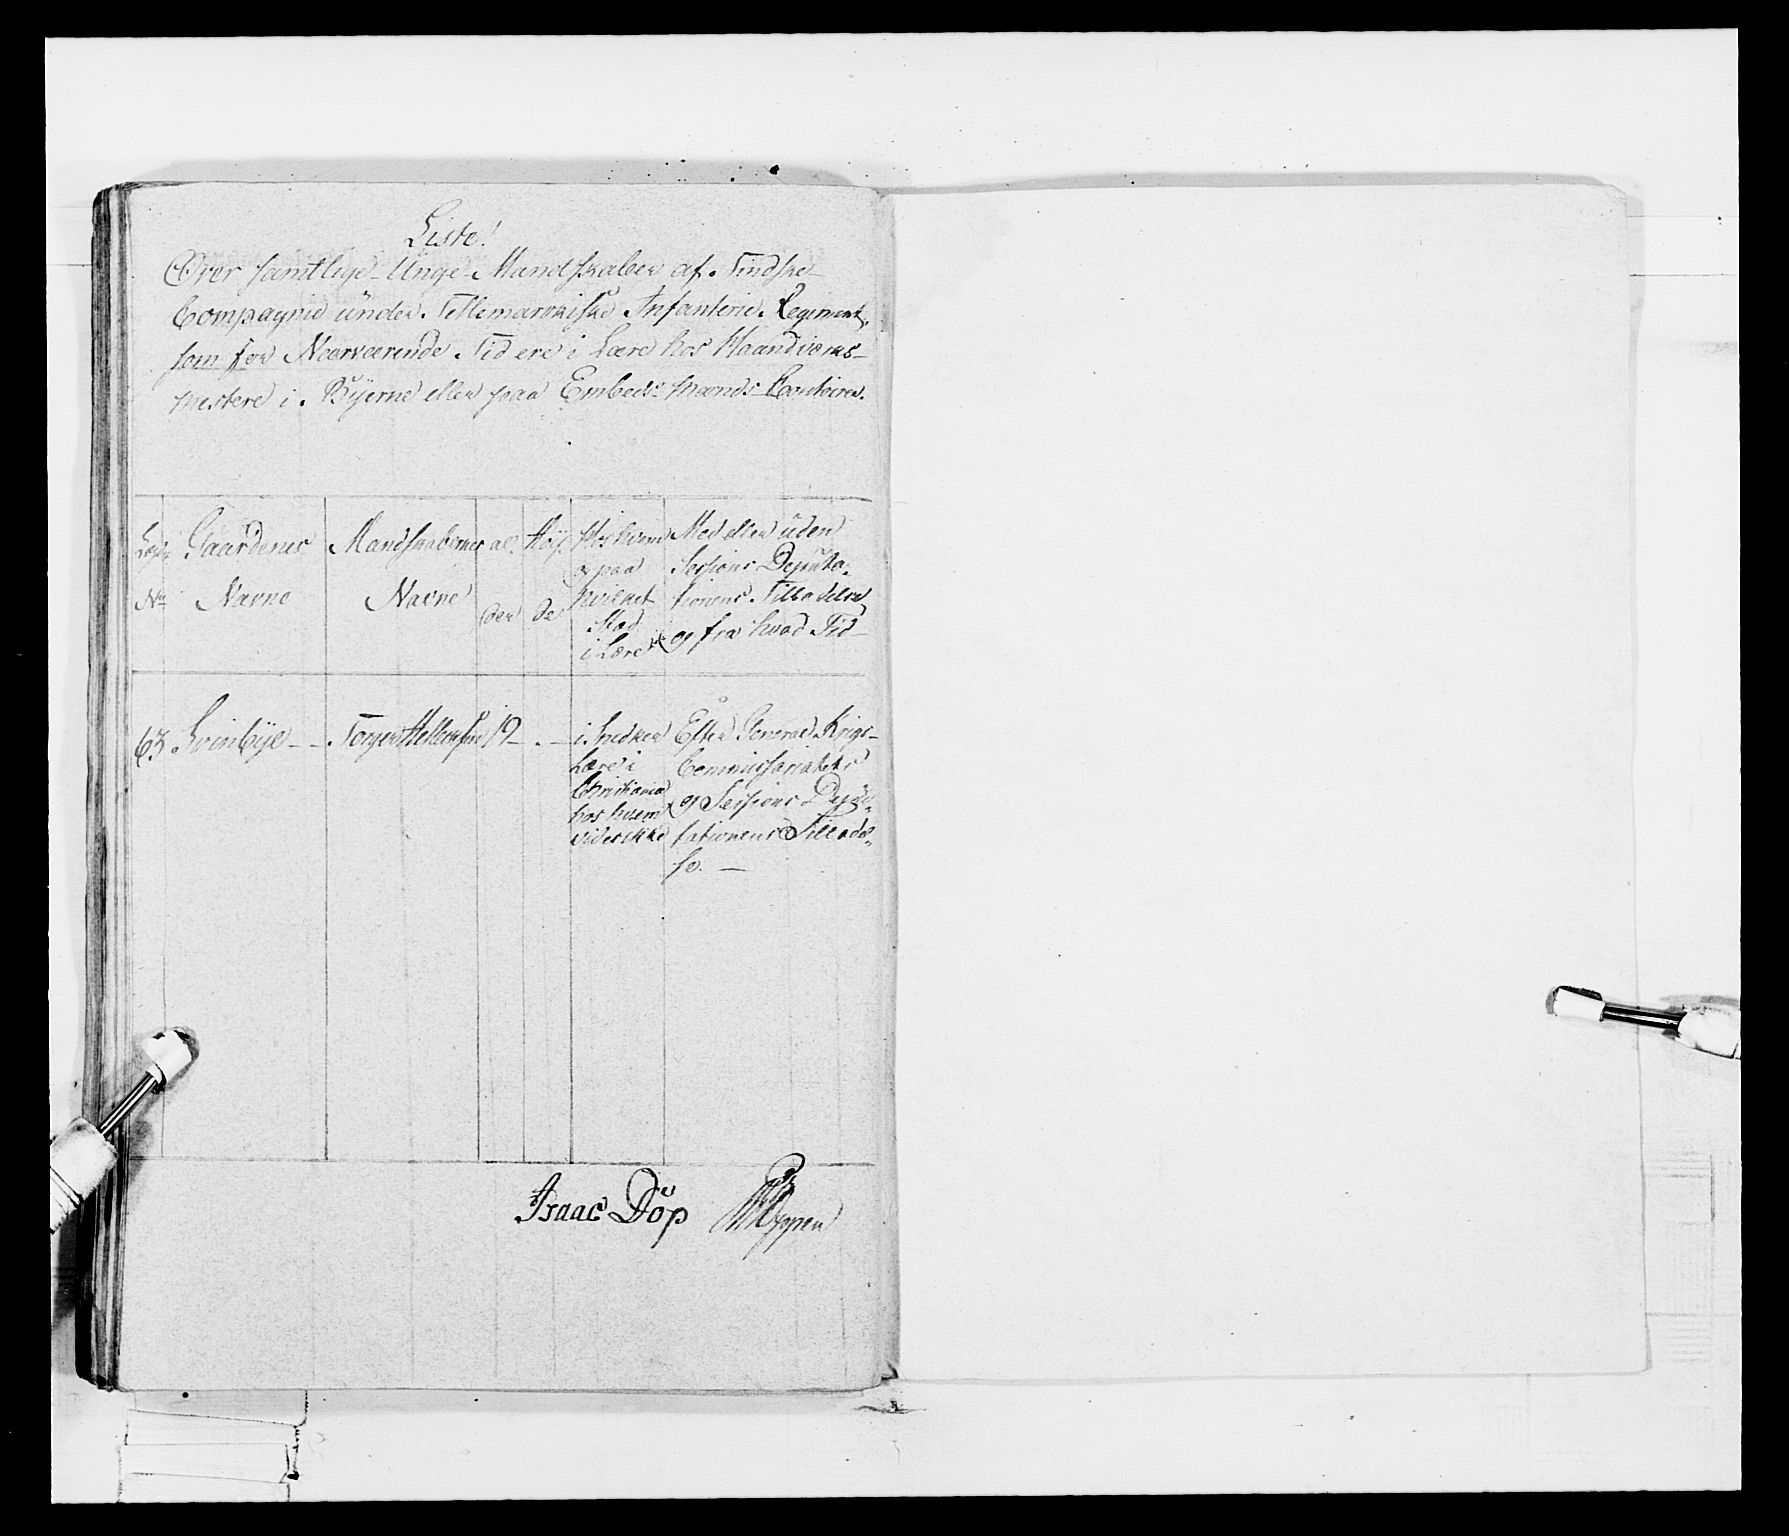 Liste!
Over samtlige Unge Mandskaber af Tindske
Compagnie under Tellemarkiske Infanterie Regiment,
som for Nærværende Tid ere i Lære hos Haandværks-
mestere i Byerne eller paa Embeds-Mænds Contoirer.
Lægds No Gaardenes Navne
Mandskabernes Navne
al der
Høy de
Hos hvem og paa hvilket Stæd i Lære
Med eller uden Sessions Deputa-tionens Tilladelse og fra hvad Tid
63 Svinbye - - Torger Hellersen 19 - . -
i Snedker
Lære i
Christiania
hos hvem
vides ikke
Efter General Krigs-
Commissariatets
og Sessions Depu-
tationens Tillade-
se. -
Isaac Döp